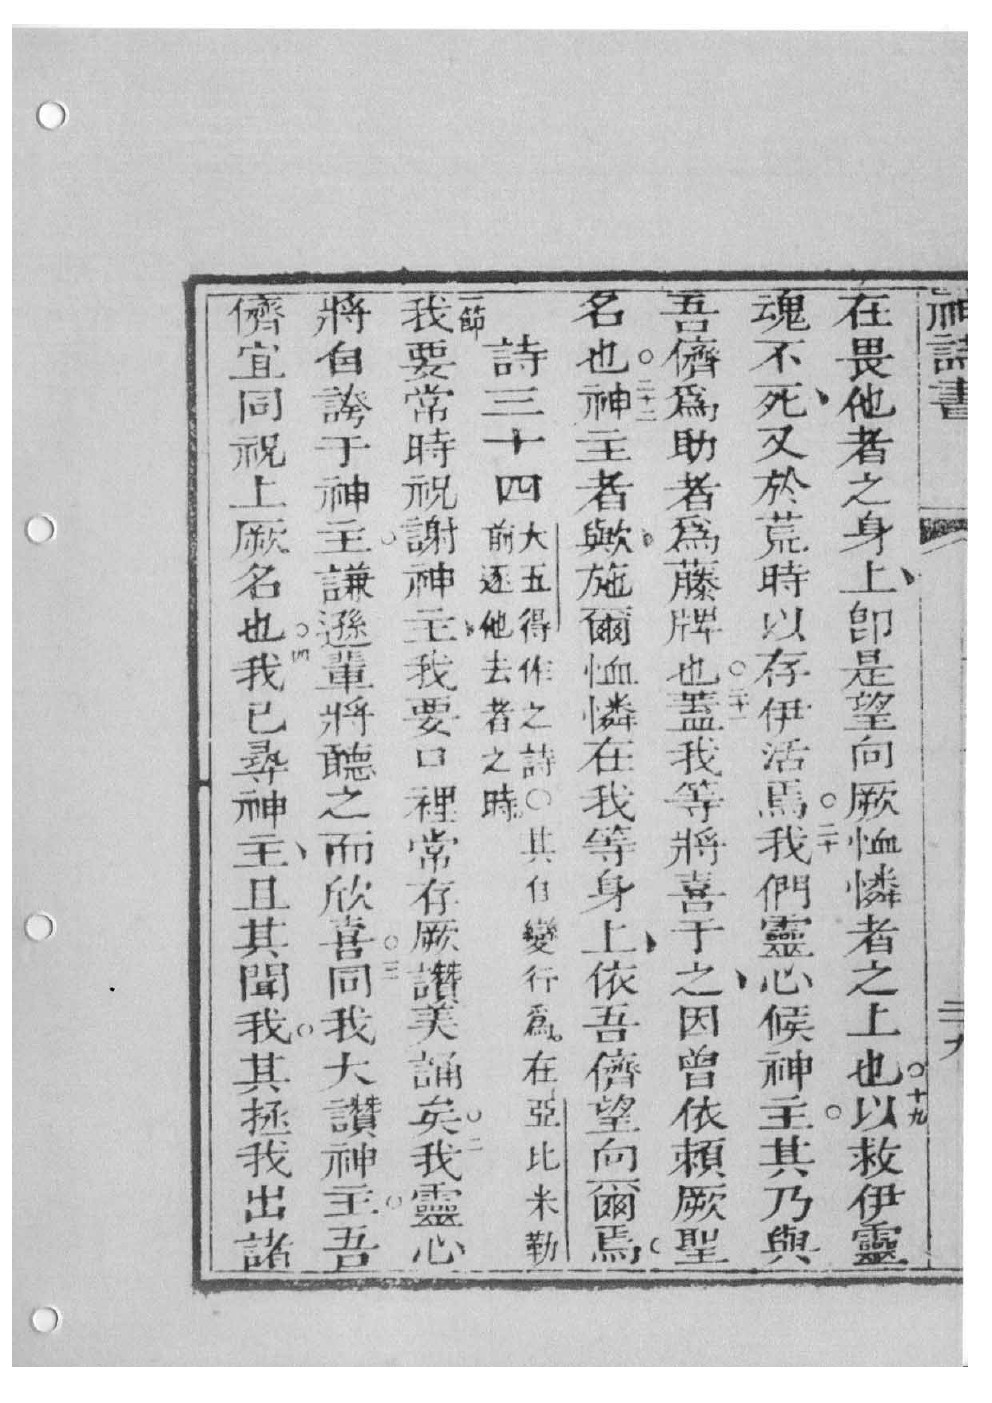 神詩書 二九
在畏他者之身上卽是望向厥恤憐者之上也○十九以救伊靈
魂不死又於荒時以存伊活焉○二十我們靈心候神主○其乃與
吾儕爲助者爲藤牌也○二十一蓋我等將喜于之因曾依頼厥聖
名也○二十二神主者歟施爾恤憐在我等身上依吾儕望向爾焉
詩三十四 大五得作之詩○其自變行爲在亞比米勒
前逐他去者之時
一節我要常時祝謝神主我要口裡常存厥讚美誦矣○二我靈心
將自誇于神主○謙遜輩將聽之而欣喜○三同我大讚神主○吾
儕宜同祝上厥名也○四我已尋神主且其聞我○其拯我出諸